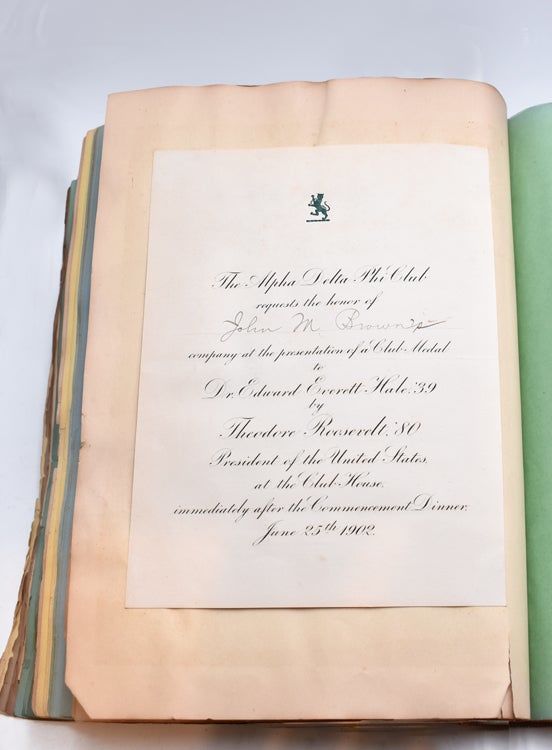 The Alpha Delta Phi Club
requests the honor of
John M Brown's
company at the presentation of a Club Medal
to
Dr. Edward Everett Hale, '39
by
Theodore Roosevelt, '80
President of the United States,
at the Club House,
immediately after the Commencement Dinner,
June 25th 1902.